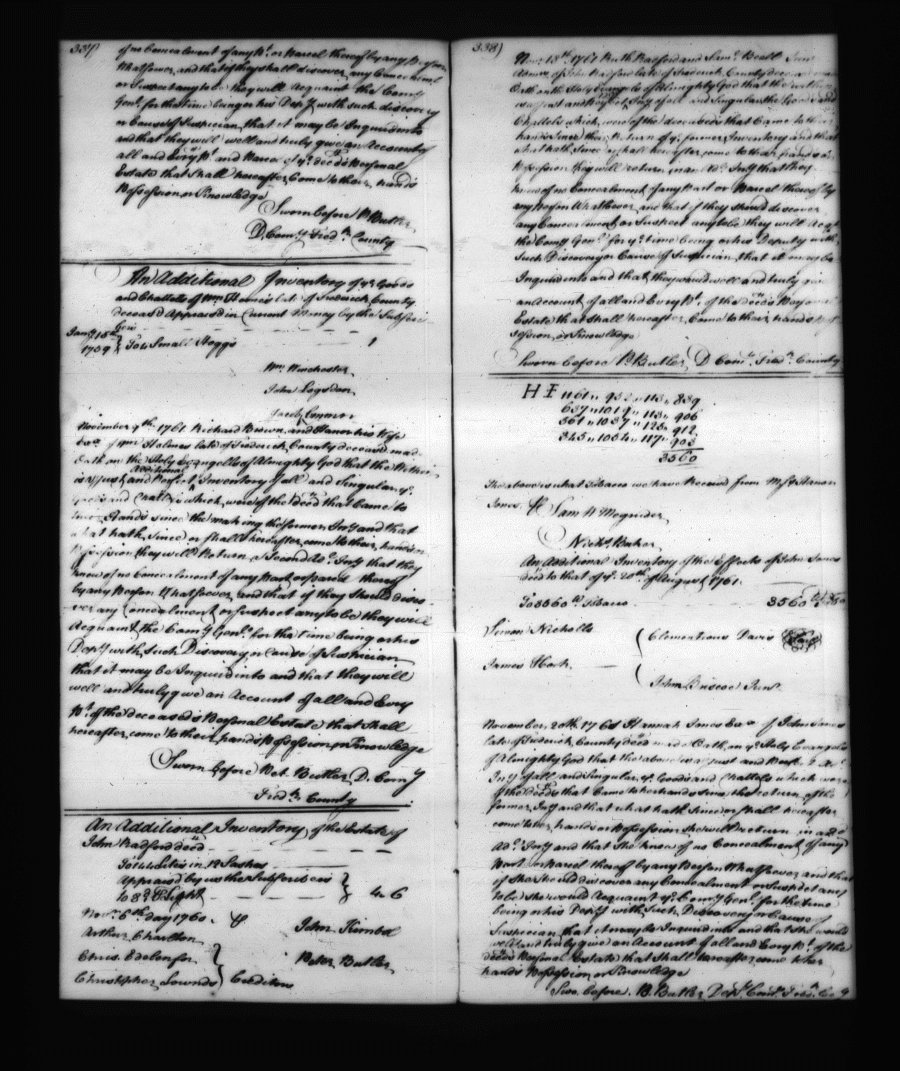 337)
of no Concealment of any Pt. or Parcel thereof by any Person
Whatsoever, and that if they shall discover any Concealment
or Suspect any to be they will Acquaint the Comy
Genl. for the time being or his Depty with such discovery
or Cause of Suspician, that it may be Inquired into
and that they will well and truly give an Account of
all and Every Pt. and Parcel of ye. deceds Personal
Estate that shall hereafter Come to their hands
Possession or Knowledge
Sworn before P. Butler
D. Comy. Fredk. County
An Additional Inventory of ye. Goods
and Chattels of Wm. Holmes late of Frederick County
deceas'd Appraised in Current Money by the Subscri
bers
Jany 15th
1759 } To 4 Small Hoggs 1
Wm. Winchester
John Logsdon
November 9th. 1761 Richard Brown and Hanor his Wife
Exx. of Wm. Holmes late of Frederick County deceased made
Oath on the Holy Evangells of Almighty God that the Within
is a Just and Perfect Additional Inventory of all and Singular ye.
goods and Chattls. which were of the deced that Came to
their Hands since the making the former Invy and that
what hath since or shall hereafter come to their hands or
Possession they will Return a Second Ad. Invy that they
know of no Concealment of any Part or parcel thereof
by any Person Whatsoever, and that if they should disco
ver any Concealment or suspect any to be they will
Acquaint the Comy Genl. for the Time being or his
Depty with such Discovery or Cause of Suspician
that it may be Inquired into and that they will
well and truly give an Account of all and Every
Pt. of the deceased's Personal Estate that shall
hereafter come to their hands Possession or Knowledge
Sworn before Pet. Butler D. Comy
Fredk. County
An Additional Inventory of the Estate of
John Radford deced
To in 12 Sashes
Appraised by us the Subscribers }
to 8d ℔ Light } 4. 6
Novr. 6th. day 1760. ℔ John Kimbol
Arthur Charlton
Chris. Edelen for } Peter Butler
Christopher Lownds } Creditors
338)
Novr. 18th. 1761 Ruth Radford and Saml. Beall Junr.
Admrs. of John Radford late of Frederick County deced made
Oath on the Holy Evangells of Almighty God that the within
is a Just and Perfect Invy of all and Singular the Goods and
Chattels which were of the deceaseds that Came to their
hands since their Return of ye. former Inventory and that
what hath since or shall hereafter come to their hands or
Possession they will return in an Ad. Invy that they
know of no Concealment of any Part or Parcel thereof by
any Person Whatsoever and that if they should discover
any Concealment or Suspect any to be they will Acqt
the Comy Genl. for ye. time being or his Deputy with
such Discovery or Cause of Suspician, that it may be
Inquired into and that they would well and truly give
an Account of all and Every Pt. of the deceds Personal
Estate that shall hereafter Come to their hands Pos
session or Knowledge
Sworn before P. Butler D Comy. Fredk. County
H I 1161 ,, 932 ,, 113 ,, 839
637 ,, 1019 ,, 113 ,, 906
561 ,, 1037 ,, 125 ,, 912
345 ,, 1054 ,, 117 ,, 903
3560
The above is what Tobacco we have Received from Mrs. Hannah
Jones. ℔ Sam W Magruder
Nichs. Baker
An Additional Inventory of the Effects of John Jones
deced to that of ye. 20th. of August 1761.
To 3560 lb Tobacco 3560
Simon Nicholls ( Clementious Davis
James Hook ( John Briscoe Junr.
November 20th. 1761 Hannah Jones Exx of John Jones
late of Frederick County deced made Oath on ye. Holy Evangels
of Almighty God that the above is a just and Perft. Ad.
Invy of all and Singular ye. Goods and Chattels which were
of the deceds that Came to her hands since the return of the
former Invy and that what hath since or shall hereafter
come to her hands or Possession she will return in a
Ad. Invy and that she knows of no Concealment of any
Part or Parcel thereof by any Person Whatsoever and that
if she should discover any Concealment or suspect any
to be she would Acquaint ye. Comy Genl. for the time
being or his Depty with such Discovery or Cause of
Suspician that it may be Inquired into and that she would
well and truly give an Account of all and Every Pt. of the
deceds Personal Estate that shall hereafter come to her
hands Possession or Knowledge
Swo. before. P. Butler Depty. Comy. Fredk. Co y